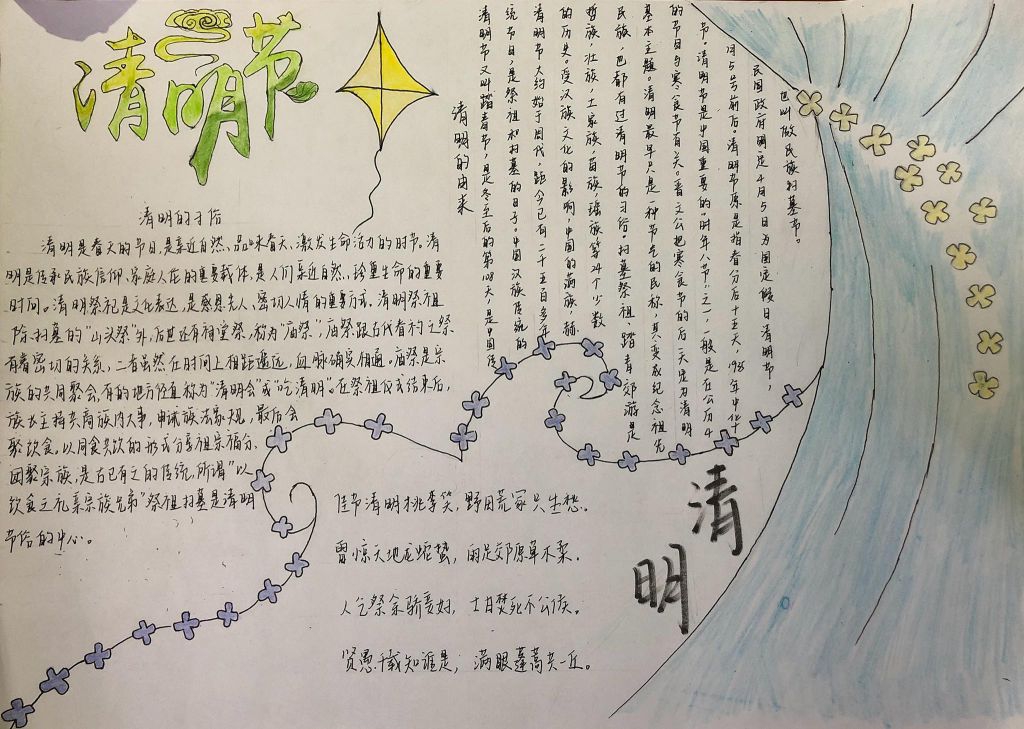 清明节
清明的习俗
清明是春天的节日,是亲近自然、品味春天、激发生命活力的时节。清
明是传承民族信仰、家庭人伦的重要载体,是人们亲近自然、珍重生命的重要
时间。清明祭祀是文化表达,是感恩先人、密切人情的重要方式。清明祭祖
除扫墓的“山头祭”外,后世还有祠堂祭,称为“庙祭”,庙祭跟古代春礿之祭
有着密切的关系,二者虽然在时间上相距遥远,血脉确实相通。庙祭是宗
族的共同聚会,有的地方径直称为“清明会”或“吃清明”。在祭祖仪式结束后,
族长主持共商族内大事,申诫族法家规,最后会
聚饮食。以同食共饮的形式分享祖宗福分、
团聚宗族,是古已有之的传统,所谓“以
饮食之礼亲宗族兄弟”祭祖扫墓是清明
节俗的中心。
清明的由来
清明节又叫踏青节,是冬至后的第108天,是中国传
统节日,是祭祖和扫墓的日子。中国汉族传统的
清明节大约始于周代,距今已有二千五百多年
的历史。受汉族文化的影响,中国的满族,赫
哲族,壮族,土家族,苗族,瑶族等24个少数
民族,也都有过清明节的习俗。扫墓祭祖、踏青郊游是
基本主题。清明最早只是一种节气的民称,其变成纪念祖先
的节日与寒食节有关。晋文公把寒食节的后一天定为清明
节。清明节是中国重要的“时年八节”之一,一般是在公历4
月5号前后。清明节原是指春分后十五天,1935年中华
民国政府明定4月5日为国定假日清明节,
也叫做民族扫墓节。
佳节清明桃李笑,野田荒冢只生愁。
雷惊天地龙蛇蛰,雨足郊原草木柔。
人乞祭余骄妾妇,士甘焚死不公侯。
贤愚千载知谁是,满眼蓬蒿共一丘。
清明